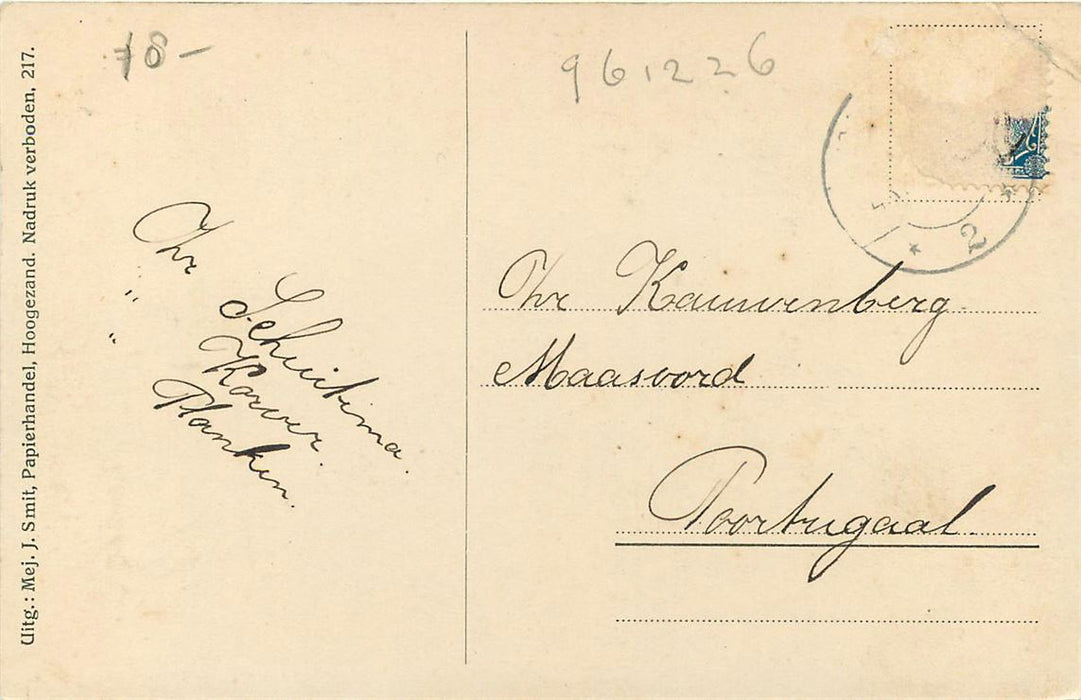 Uitg.: Mej. J. Smit, Papierhandel, Hoogezand. Nadruk verboden, 217.
78-
961226
Chr Schuitima.
" Korver.
" Planken.
2
Chr Kauwenberg
Maasoord
Poortugaal.